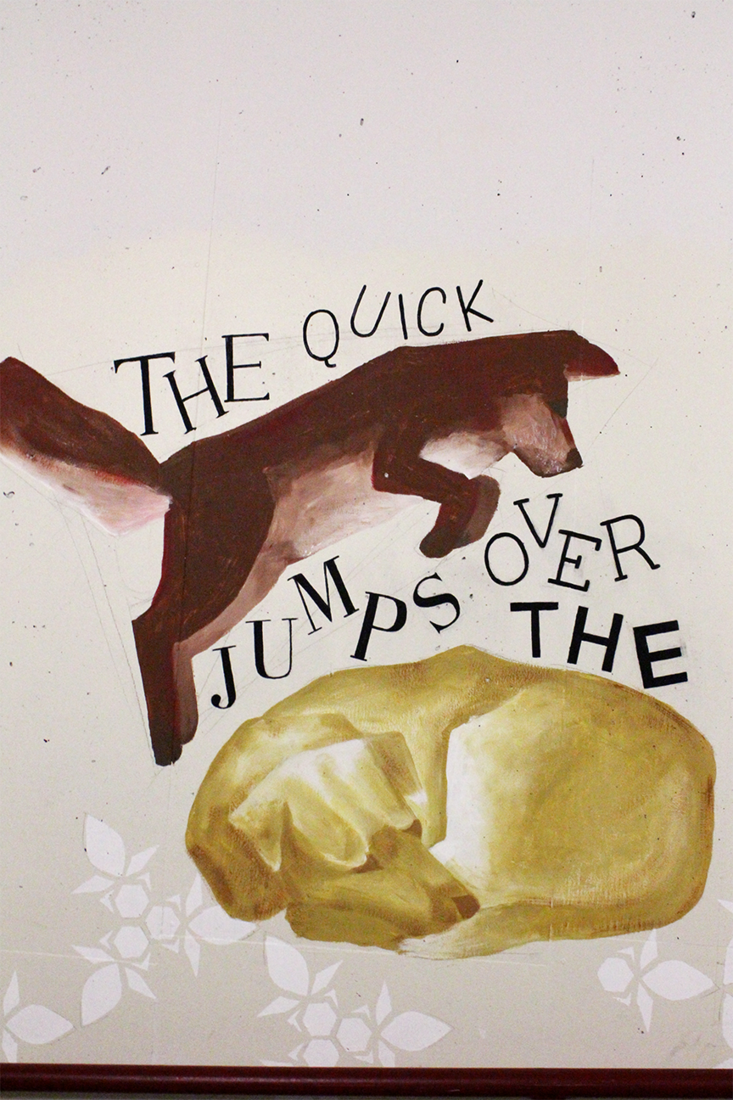 THE QUICK
JUMPS OVER
THE